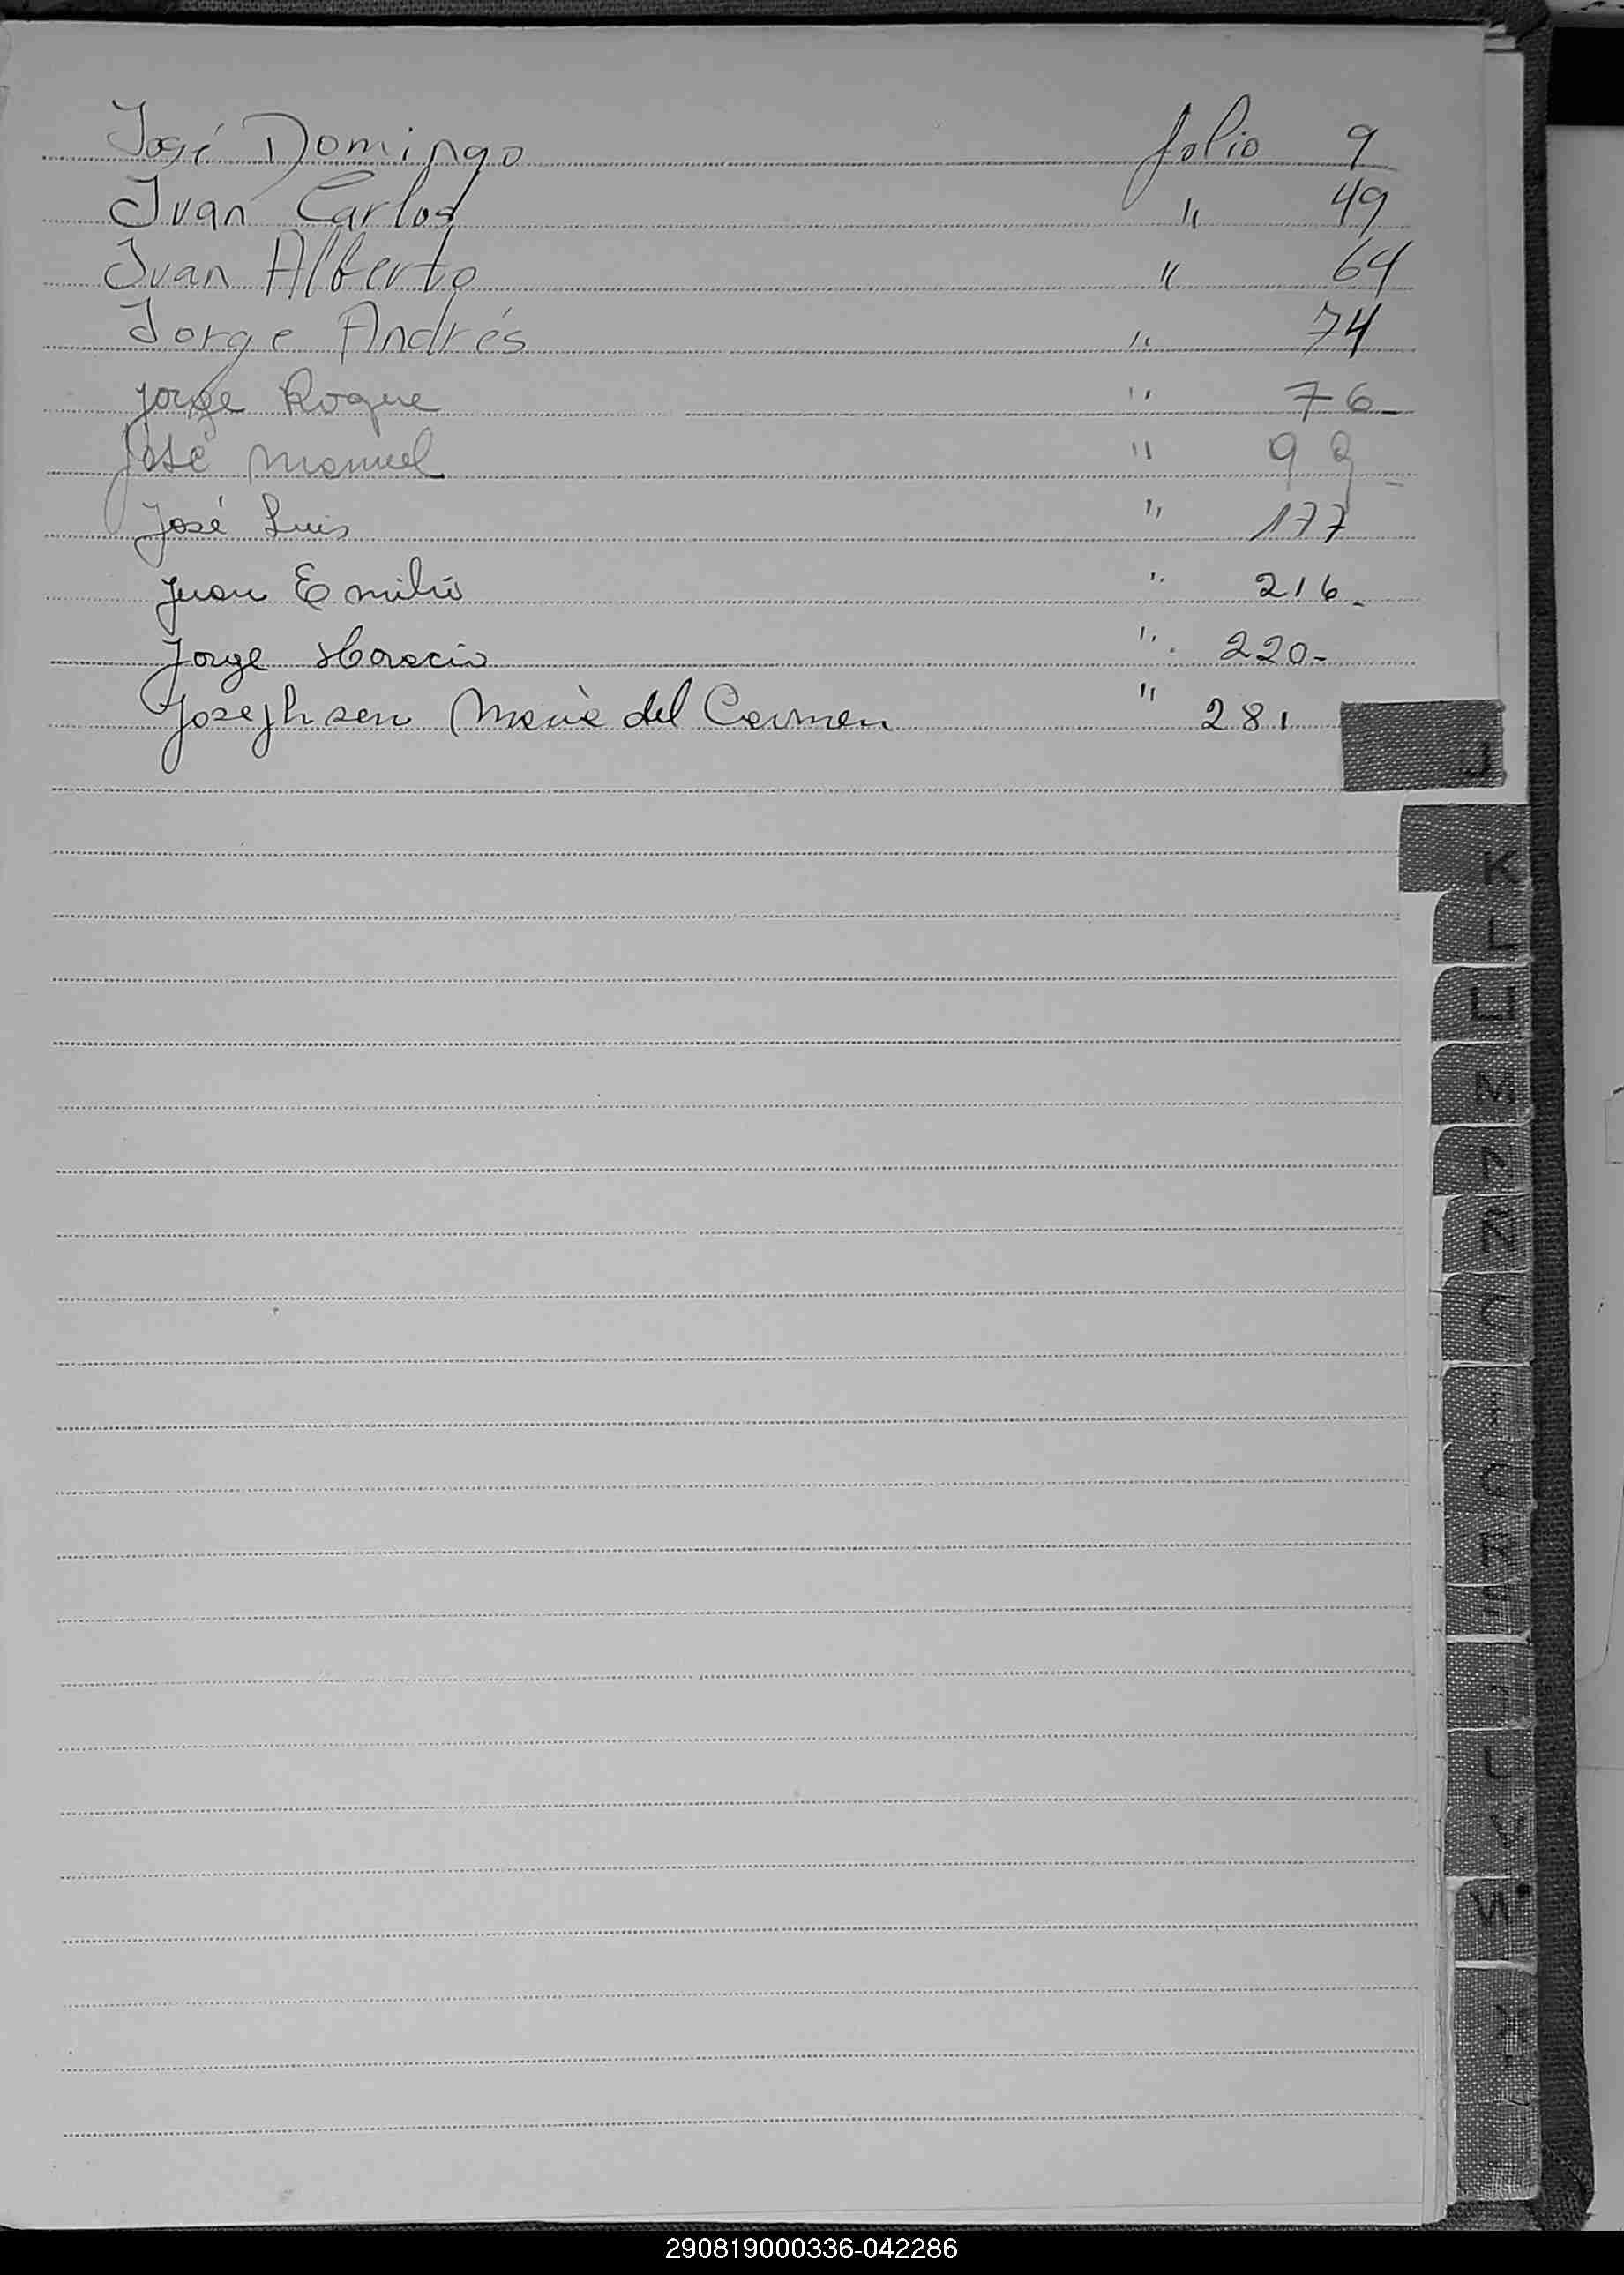 José Domingo folio 9
Juan Carlos " 49
Juan Alberto " 64
Jorge Andrés " 74
Jorge Roque " 76-
José Manuel "
José Luis " 177
Juan Emilio " 216-
Jorge Horacio " 220-
Josephsen María del Carmen " 281
J
K
L
LL
M
N
Ñ
R
V
W
290819000336-042286